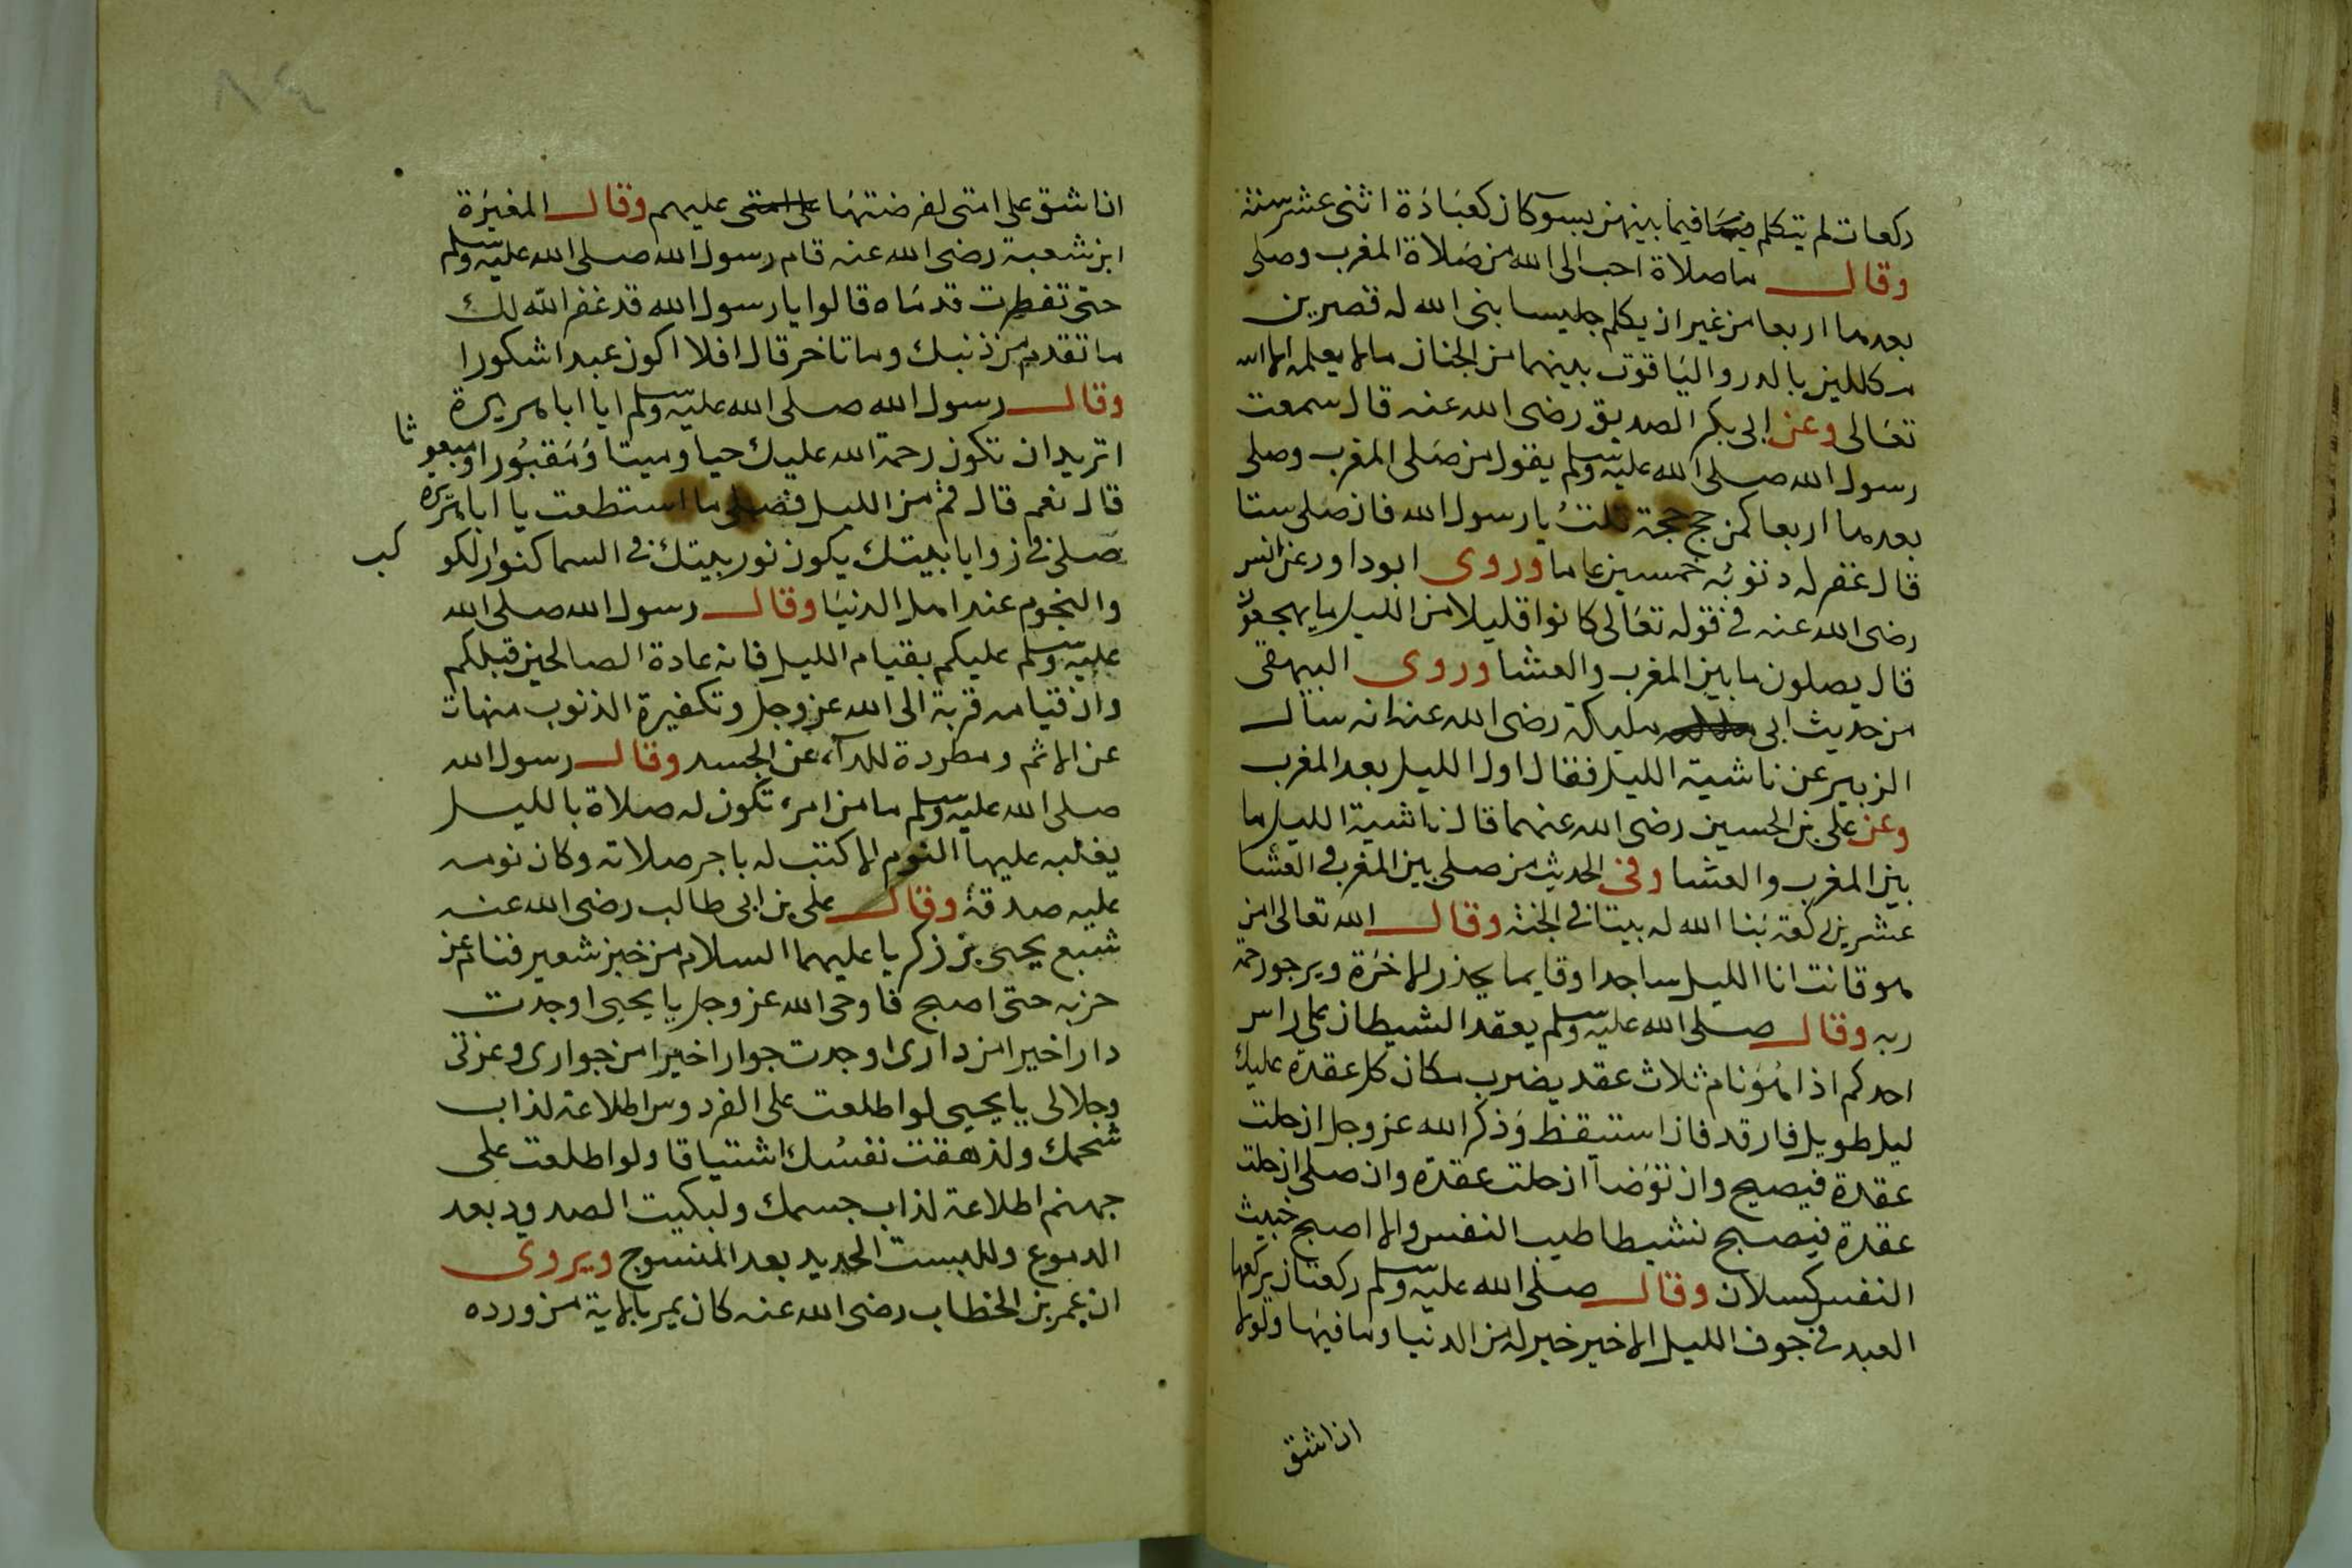 ركعات لم يتكلم فيما بينهن بسوء كان كعبادة اثنى عشر سنة
وقال ما صلاة احب الى الله من صلاة المغرب وصلى
بعدها اربعا من غير ان يكلم جليسا بنى الله له قصرين
مكللين بالدر والياقوت بينهما من الجنان ما لا يعلمه الا الله
تعالى وعن ابى بكر الصديق رضى الله عنه قال سمعت
رسول الله صلى الله عليه وسلم يقول من صلى المغرب وصلى
بعدها اربعا كمن حج حجة قلت يا رسول الله فان صلى ستا
قال غفر له ذنوبه خمسين عاما وروى ابو داود عن انس
رضى الله عنه فى قوله تعالى كانوا قليلا من الليل ما يهجعون
قال يصلون ما بين المغرب والعشا وروى البيهقى
من حديث ابى مليكة رضى الله عنه انه سال
الزبير عن ناشية الليل فقال اول الليل بعد المغرب
وعن على بن الحسين رضى الله عنهما قال ناشية الليل ما
بين المغرب والعشا وفى الحديث من صلى بين المغرب والعشا
عشرين ركعة بنا الله له بيتا فى الجنة وقال الله تعالى امن
هو قانت انا الليل ساجدا وقايما يحذر الاخرة ويرجو رحمة
ربه وقال صلى الله عليه وسلم يعقد الشيطان على راس
احدكم اذا هو نام ثلاث عقد يضرب مكان كل عقدة عليك
ليل طويل فارقد فان استيقظ وذكر الله عز وجل انحلت
عقدة فيصبح وان توضأ انحلت عقدة وان صلى انحلت
عقدة فيصبح نشيطا طيب النفس والا اصبح خبيث
النفس كسلان وقال صلى الله عليه وسلم ركعتان يركعها
العبد فى جوف الليل الاخير خير له من الدنيا وما فيها ولولا
ان اشق
٨٤
ان اشق على امتى لفرضتها على امتى عليهم وقال المغيرة
ابن شعبة رضى الله عنه قام رسول الله صلى الله عليه وسلم
حتى تفطرت قدماه قالوا يا رسول الله قد غفر الله لك
ما تقدم من ذنبك وما تاخر قال افلا اكون عبدا شكورا
وقال رسول الله صلى الله عليه وسلم ايا ابا هريرة
اتريد ان تكون رحمة الله عليك حيا وميتا ومقبورا ومبعوثا
قال نعم قال قم من الليل فصلى ما استطعت يا ابا هريرة
صلى فى زوايا بيتك يكون نور بيتك فى السما كنوار لكوكب
والنجوم عند اهل الدنيا وقال رسول الله صلى الله
عليه وسلم عليكم بقيام الليل فانه عادة الصالحين قبلكم
وان قيامه قربة الى الله عز وجل وتكفيرة الذنوب منهات
عن الاثم ومطردة للدآء عن الجسد وقال رسول الله
صلى الله عليه وسلم ما من امرء تكون له صلاة بالليل
يغلبه عليها النوم الا كتب له باجر صلاته وكان نومه
عليه صدقة وقال على بن ابى طالب رضى الله عنه
شبع يحيى بن زكريا عليهما السلام من خبز شعير فنام عن
حزبه حتى اصبح فاوحى الله عز وجل يا يحيى اوجدت
دارا خيرا من دارى اوجدت جوارا خيرا من جوارى وعزتى
وجلالى يا يحيى لو اطلعت على الفردوس اطلاعة لذاب
شحمك ولذهقت نفسك اشتياقا ولو اطلعت على
جهنم اطلاعة لذاب جسمك ولبكيت الصدود بعد
الدموع وللبست الحديد بعد المنسوج ويروى
ان عمر بن الخطاب رضى الله عنه كان يمر بالاية من ورده